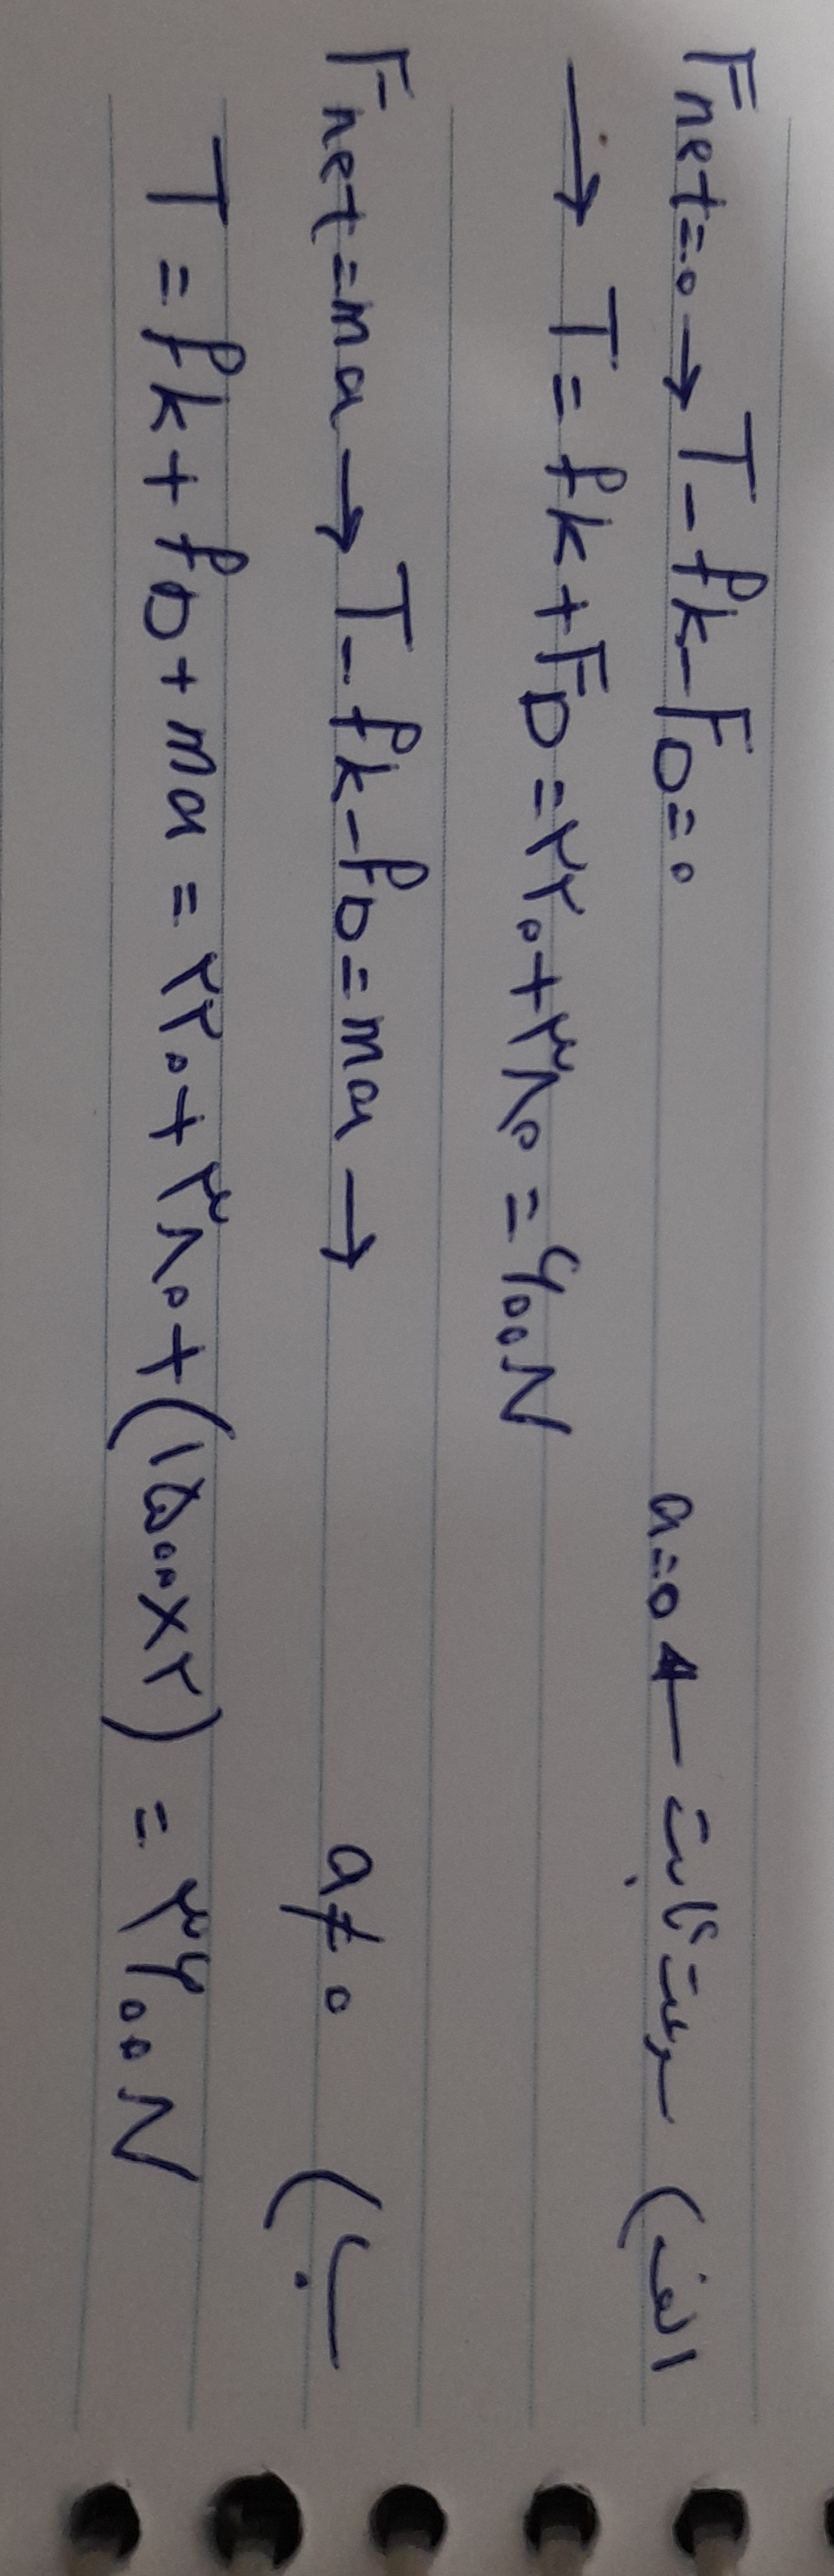 الف) سرعت ثابت ← a=۰ Fnet=۰ → T-fk-FD=۰
→ T=fk+FD=۲۲۰+۳۸۰=۶۰۰N
ب) a≠۰ Fnet=ma → T-fk-fD=ma →
T=fk+fD+ma=۲۲۰+۳۸۰+(۱۵۰۰×۲)=۳۶۰۰N